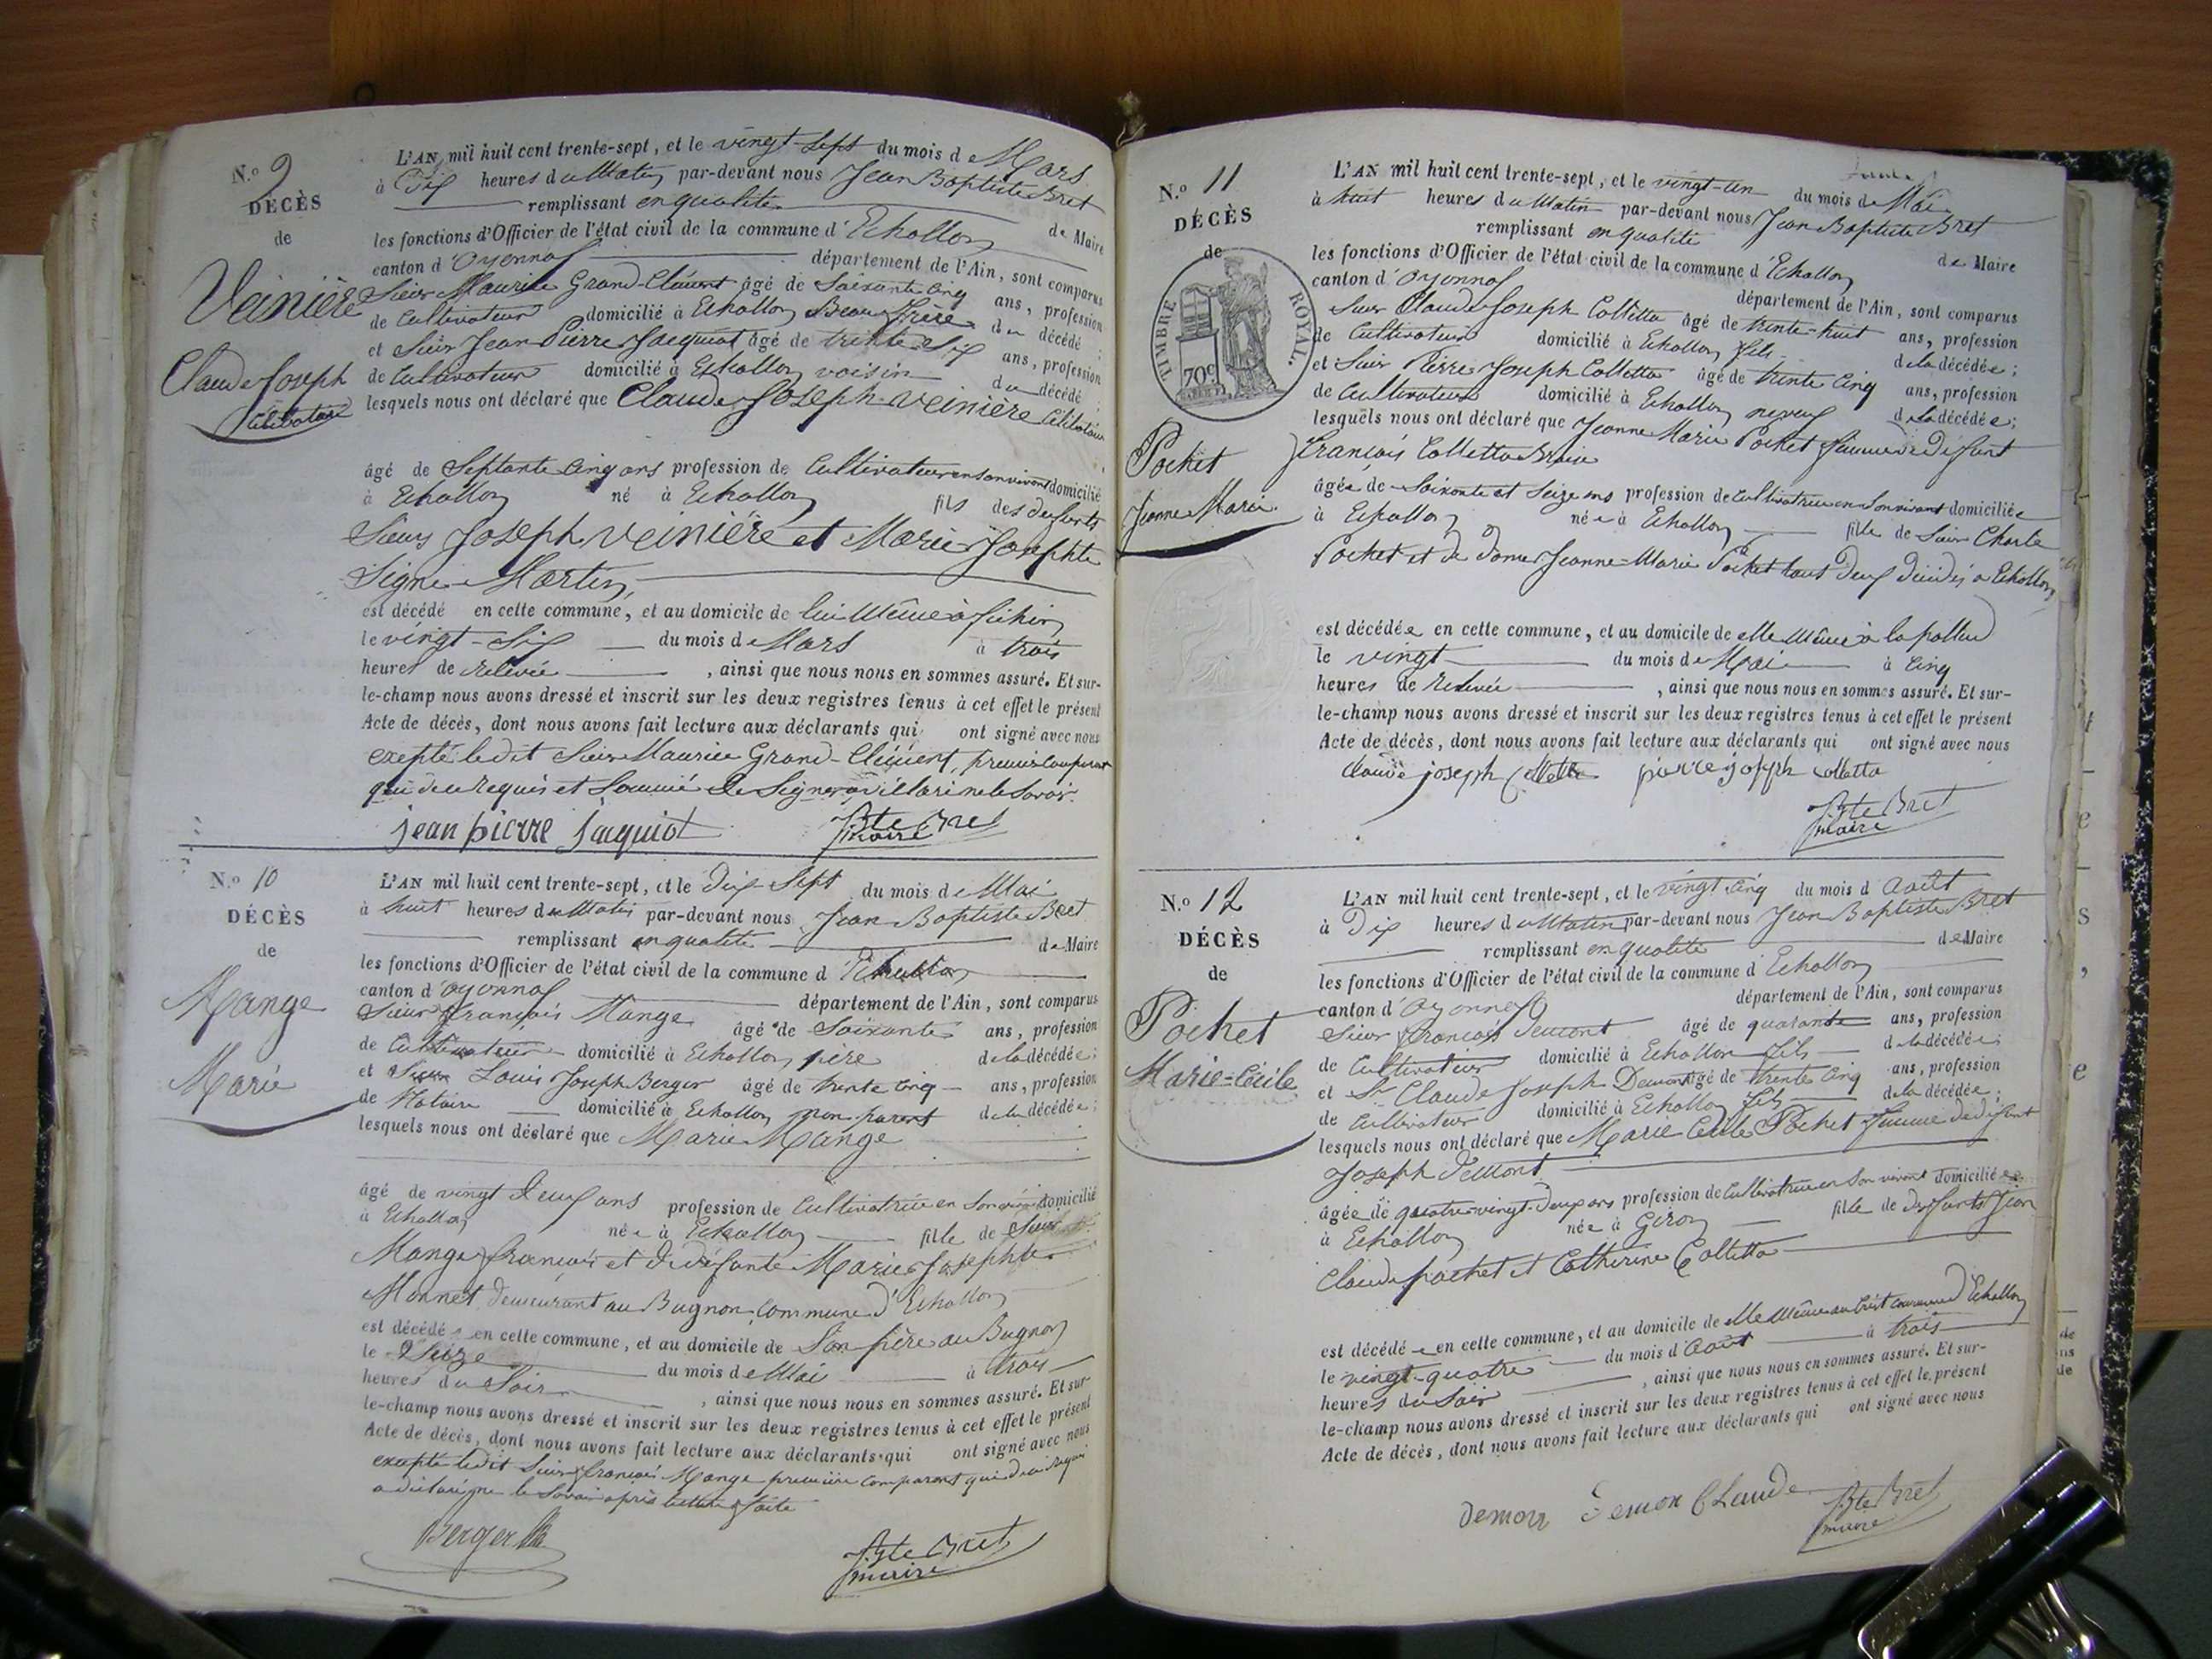 N.o 9
DÉCÈS
de
Veinière
Claude Joseph
Célibataire
L'AN mil huit cent trente-sept, et le vingt-sept du mois de Mars
à Dix heures du Matin par-devant nous Jean Baptiste Bret
remplissant en qualité de Maire
les fonctions d'Officier de l'état civil de la commune d'Echallon
canton d'Oyonnax département de l'Ain, sont comparus
Sieur Maurice Grand-Clément âgé de Soixante cinq ans, profession
de Cultivateur domicilié à Echallon Beau frère du décédé;
et Sieur Jean Pierre Jacquiot âgé de trente Six ans, profession
de Cultivateur domicilié à Echallon voisin du décédé;
lesquels nous ont déclaré que Claude Joseph Veinière Célibataire
âgé de Septante cinq ans profession de Cultivateur en son vivant domicilié
à Echallon né à Echallon fils des defunts
Sieurs Joseph Veinière et Marie Josephte
Signe Martin
est décédé en cette commune, et au domicile de lui Même à
le vingt-Six du mois de Mars à trois
heures de relevée, ainsi que nous nous en sommes assuré. Et sur-
le-champ nous avons dressé et inscrit sur les deux registres tenus à cet effet le présent
Acte de décès, dont nous avons fait lecture aux déclarants qui ont signé avec nous
excepté ledit Sieur Maurice Grand-Clément, premier comparant
qui de ce requis et Sommé de Signer a déclaré ne le Savoir.
jean pierre jaquiot Bte Bret
maire
N.o 10
DÉCÈS
de
Mange
Marie
L'AN mil huit cent trente-sept, et le Dix Sept du mois de Mai
à huit heures du Matin par-devant nous Jean Baptiste Bret
remplissant en qualité de Maire
les fonctions d'Officier de l'état civil de la commune d'Echallon
canton d'Oyonnax département de l'Ain, sont comparus
Sieur François Mange âgé de Soixante ans, profession
de Cultivateur domicilié à Echallon père de la décédée;
et Sieur Louis Joseph Berger âgé de trente cinq ans, profession
de Notaire domicilié à Echallon non parent de la décédée;
lesquels nous ont déclaré que Marie Mange
âgé de vingt deux ans profession de Cultivatrice en Son vivant domicilié
à Echallon née à Echallon fille de Sieur
Mange françois et de défunte Marie Josephte
Monnet demeurant au Bugnon commune d'Echallon
est décédée en cette commune, et au domicile de Son père au Bugnon
le Seize du mois de Mai à trois
heures du Soir, ainsi que nous nous en sommes assuré. Et sur-
le-champ nous avons dressé et inscrit sur les deux registres tenus à cet effet le présent
Acte de décès, dont nous avons fait lecture aux déclarants qui ont signé avec nous
excepté ledit Sieur françois Mange premier comparant qui de ce requis
a déclaré ne le Savoir après lecture faite
Berger Bte Bret
maire
N.o 11
DÉCÈS
de
TIMBRE ROYAL.
70c
Pochet
Jeanne Marie
L'AN mil huit cent trente-sept, et le vingt-un du mois de Mai
à huit heures du Matin par-devant nous Jean Baptiste Bret
remplissant en qualité de Maire
les fonctions d'Officier de l'état civil de la commune d'Echallon
canton d'Oyonnax département de l'Ain, sont comparus
Sieur Claude Joseph Colletta âgé de trente-huit ans, profession
de Cultivateur domicilié à Echallon fils de la décédée;
et Sieur Pierre Joseph Colletta âgé de trente Cinq ans, profession
de Cultivateur domicilié à Echallon neveux de la décédée;
lesquels nous ont déclaré que Jeanne Marie Pochet femme de défunt
François Colletta
âgée de Soixante et Seize ans profession de Cultivatrice en Son vivant domiciliée
à Echallon née à Echallon fille de Sieur Charle
Pochet et de Dame Jeanne-Marie Pochet tous deux décédés à Echallon
est décédée en cette commune, et au domicile de elle Même à
le vingt du mois de Mai à Cinq
heures de Relevée, ainsi que nous nous en sommes assuré. Et sur-
le-champ nous avons dressé et inscrit sur les deux registres tenus à cet effet le présent
Acte de décès, dont nous avons fait lecture aux déclarants qui ont signé avec nous
Claude joseph Colletta pierre joseph colletta
Bte Bret
maire
N.o 12
DÉCÈS
de
Pochet
Marie-Cécile
L'AN mil huit cent trente-sept, et le vingt Cinq du mois d'Août
à Dix heures du Matin par-devant nous Jean Baptiste Bret
remplissant en qualité de Maire
les fonctions d'Officier de l'état civil de la commune d'Echallon
canton d'Oyonnax département de l'Ain, sont comparus
Sieur François Demont âgé de quarante ans, profession
de Cultivateur domicilié à Echallon fils de la décédée;
et Sr Claude Joseph Demont âgé de trente Cinq ans, profession
de Cultivateur domicilié à Echallon fils de la décédée;
lesquels nous ont déclaré que Marie Cécile Pochet femme de défunt
Joseph Demont
âgée de quatre-vingt-Deux ans profession de Cultivatrice en Son vivant domiciliée
à Echallon née à Giron fille de defunts Jean
Claude pochet et Catherine Colletta
est décédée en cette commune, et au domicile de elle Même au Crêt commune d'Echallon
le vingt-quatre du mois d'Août à trois
heures du Soir, ainsi que nous nous en sommes assuré. Et sur-
le-champ nous avons dressé et inscrit sur les deux registres tenus à cet effet le présent
Acte de décès, dont nous avons fait lecture aux déclarants qui ont signé avec nous
Demon Demon Claude Bte Bret
maire